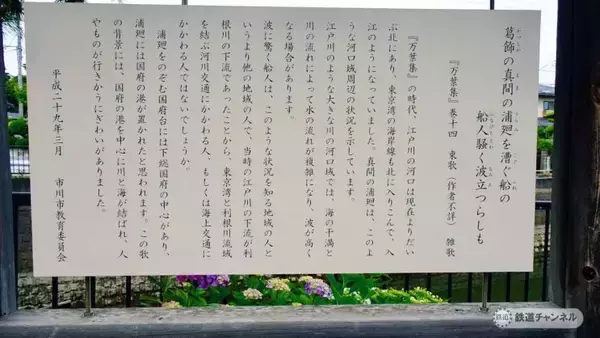 葛飾の真間の浦廻を漕ぐ船の
船人騒く波立つらしも
『万葉集』巻十四 東歌(作者不詳) 雑歌
『万葉集』の時代、江戸川の河口は現在よりだい
ぶ北にあり、東京湾の海岸線も北に入りこんで、入
江のようになっていました。真間の浦廻は、このよ
うな河口域周辺の状況を示しています。
江戸川のような大きな川の河口域では、海の干満と
川の流れによって水の流れが複雑になり、波が高く
なる場合があります。
波に驚く船人は、このような状況を知る地域の人と
いうより他の地域の人で、当時の江戸川の下流が利
根川の下流であったことから、東京湾と利根川流域
を結ぶ河川交通にかかわる人、もしくは海上交通に
かかわる人ではないでしょうか。
浦廻をのぞむ国府台には下総国府の中心があり、
浦廻には国府の港が置かれたと思われます。この歌
の背景には、国府の港を中心に川と海が結ばれ、人
やものが行きかうにぎわいがありました。
平成二十九年三月 市川市教育委員会
鉄道チャンネル